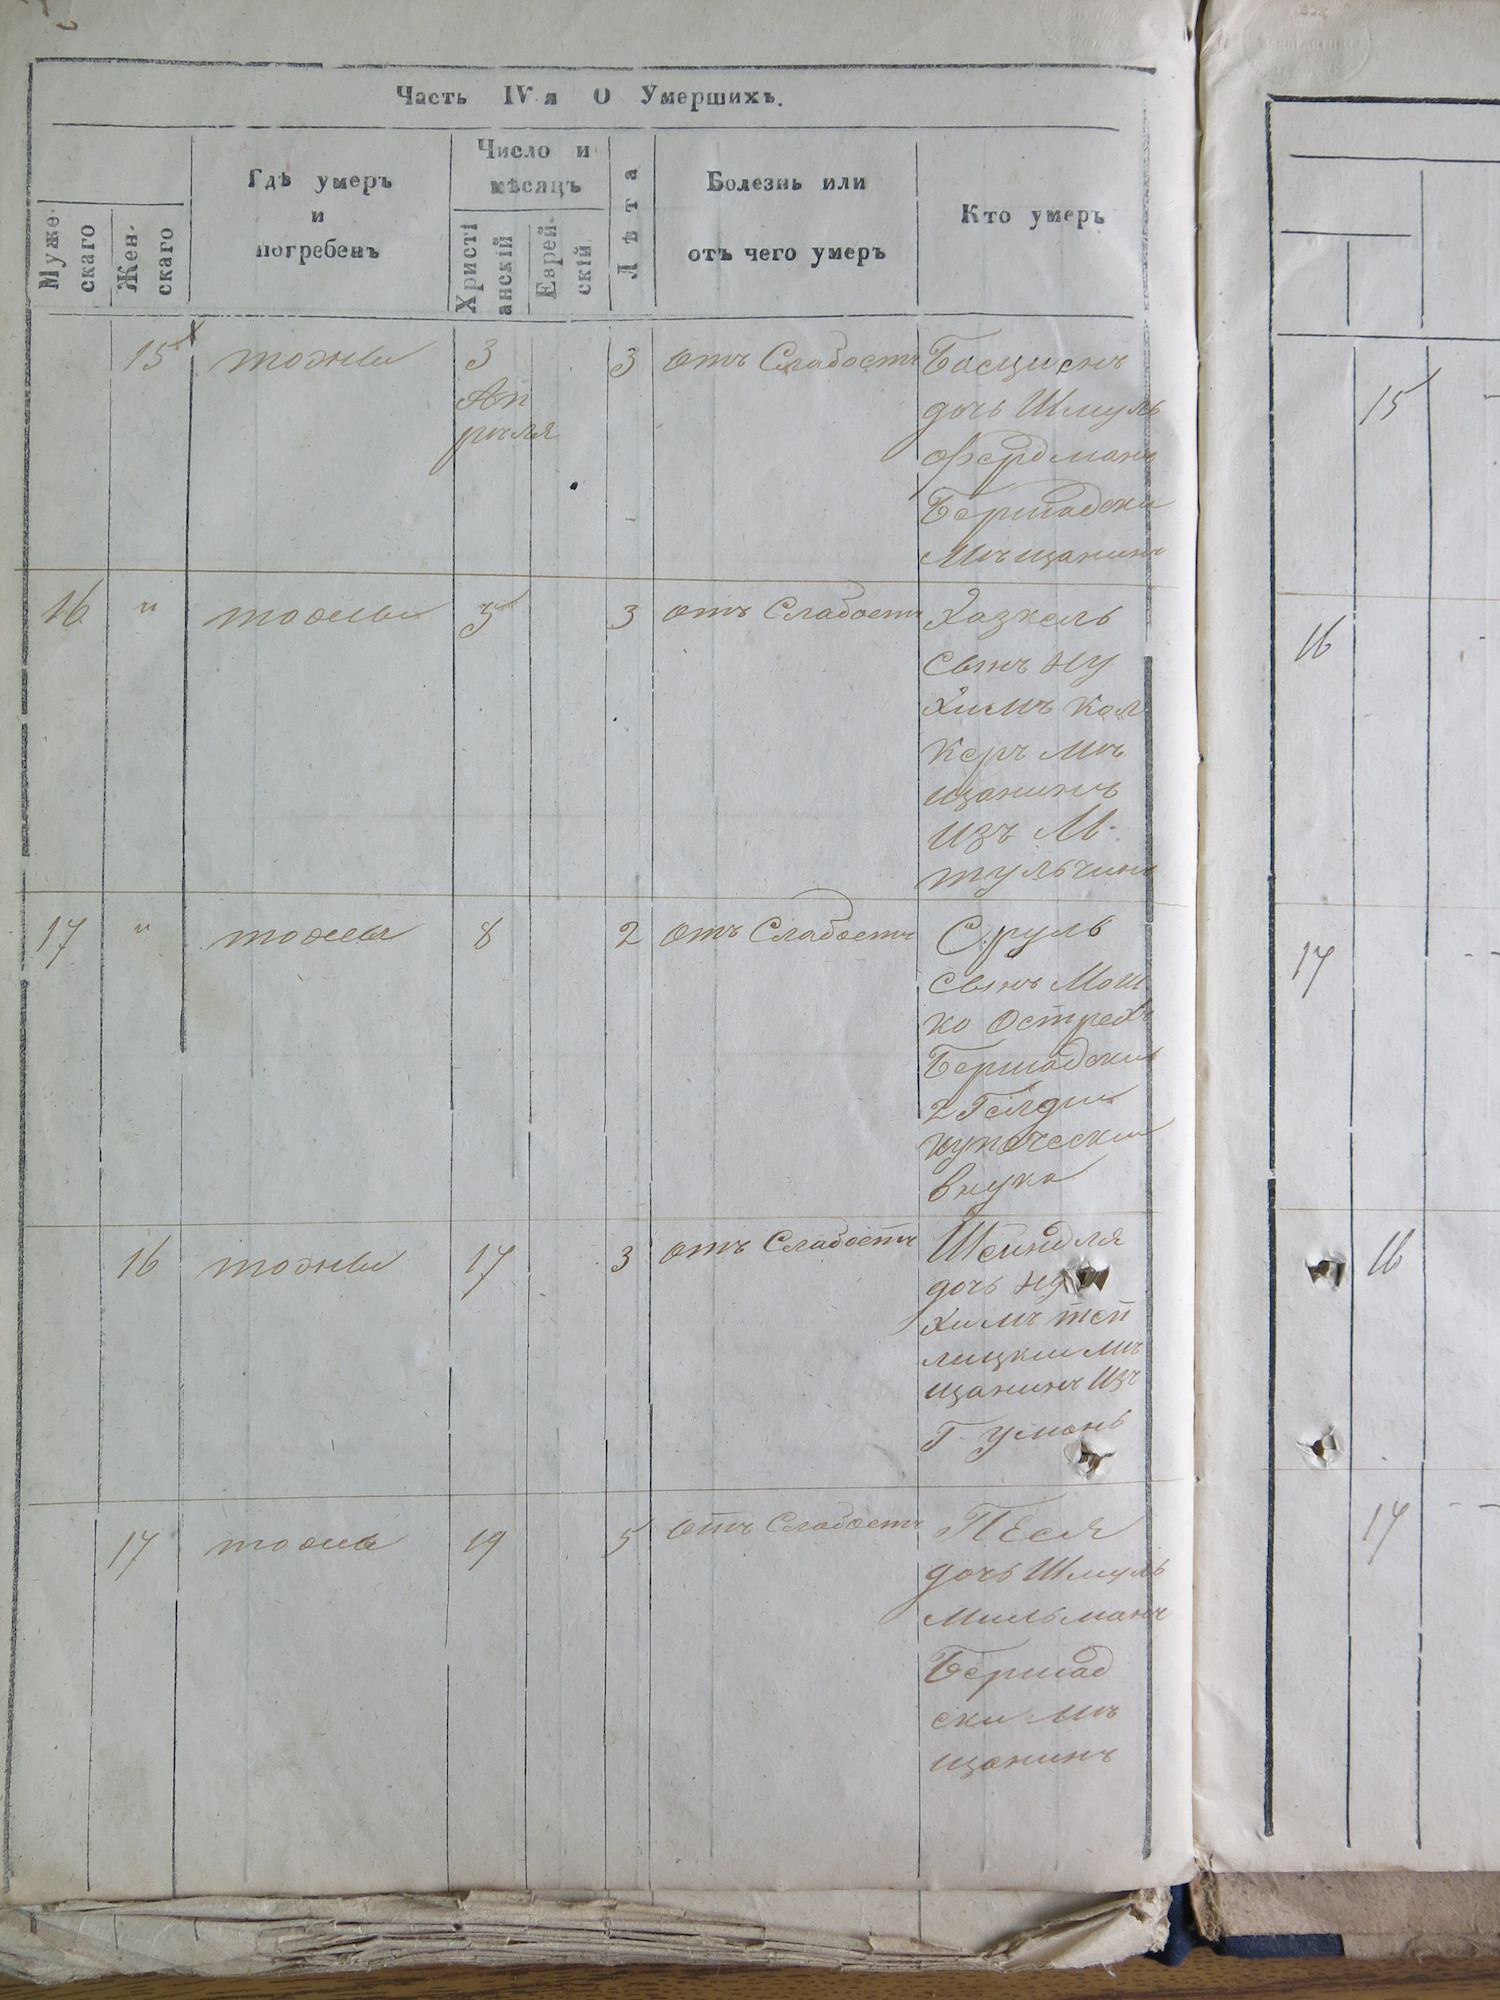 Часть IV-я О Умершихъ.
Муже-
скаго
Жен-
скаго
Гдѣ умеръ
и
погребенъ
Число и
мѣсяцъ
Христі
анскій
Еврей-
скій
Лѣта
Болезнь или
отъ чего умеръ
Кто умеръ
15 тожъ 3 3 отъ Слабости
Ап
рѣля
дочь Шмуль
Фердманъ
Бершадски
Мѣщанинъ
16 " 5 3 отъ Слабости Хазкель
Сынъ Ну
химъ Кол
керъ мѣ
щанинъ
изъ М.
тульчинъ
17 " 8 2 отъ Слабости Сруль
Сынъ Мош
ко
Бершадски
2 Гилди
купчески
внука
16 17 3 отъ Слабости Шейндля
дочь Ну
химъ теп
лицки мѣ
щанинъ Изъ
Г. Умань
17 19 5 отъ Слабости Песя
дочь Шмуль
Мильманъ
Бершад
ски мѣ
щанинъ
15
16
17
16
17